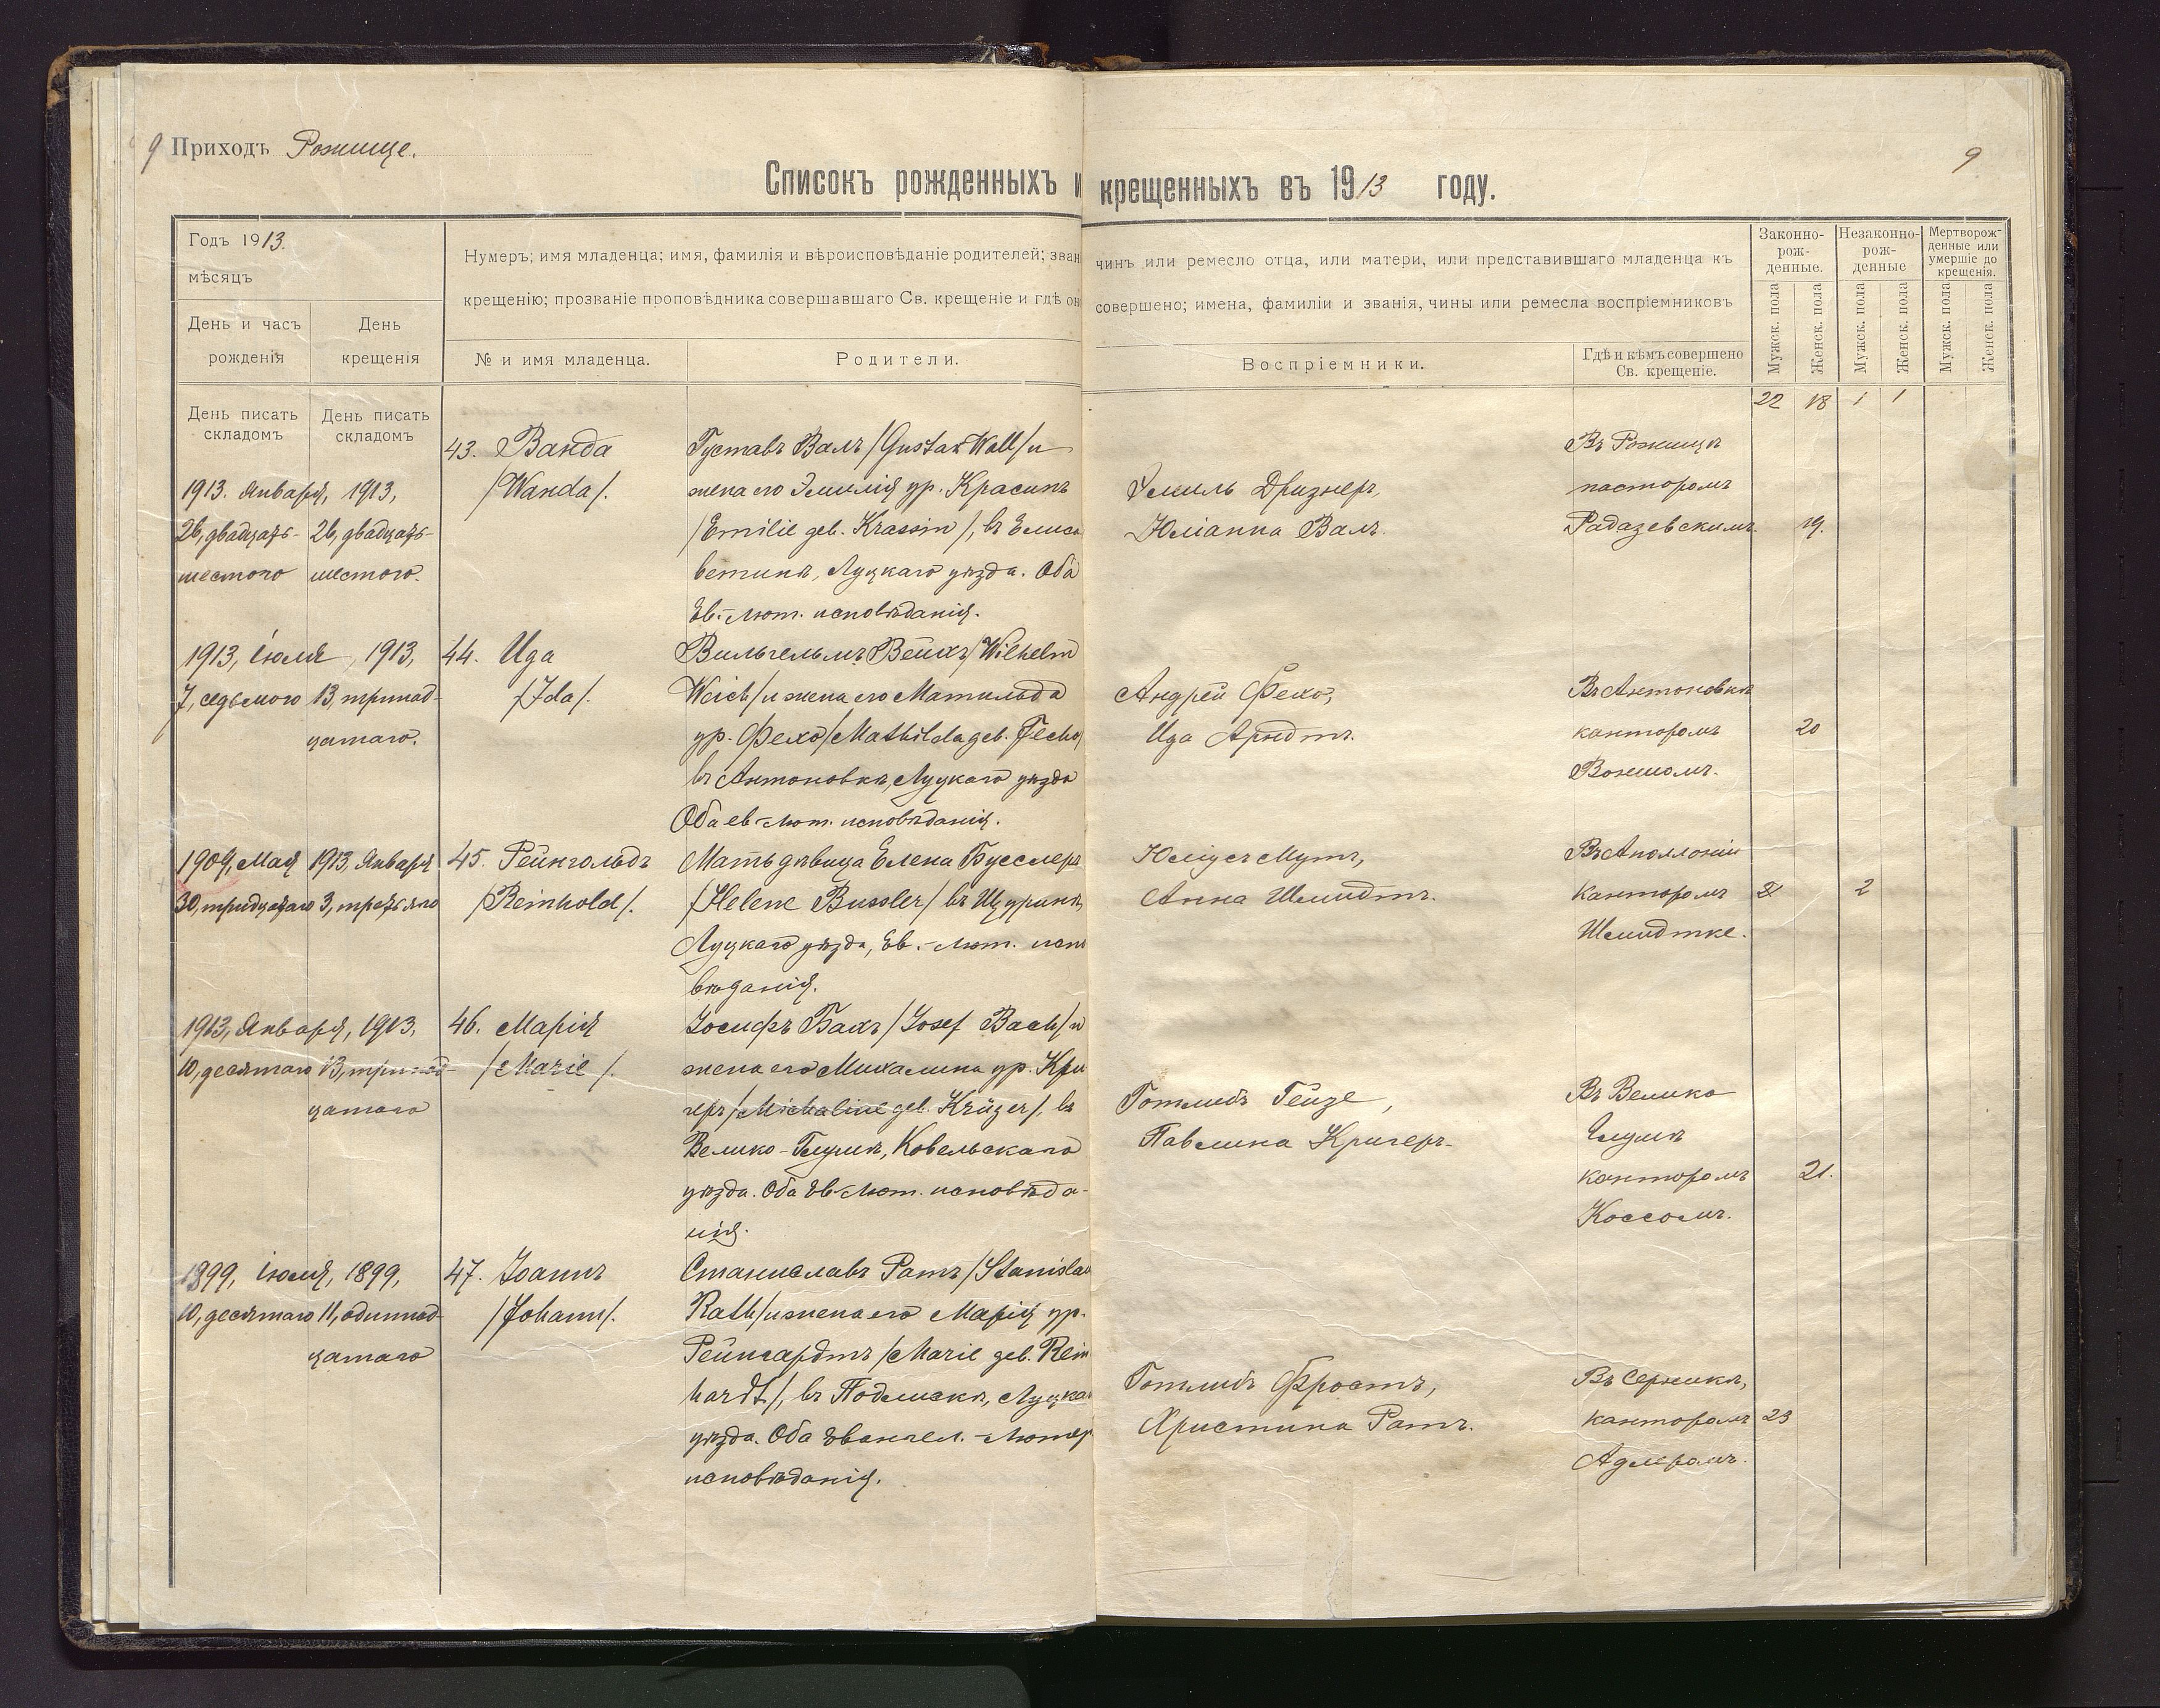 9 Приходъ Рожище.
9
Списокъ рожденныхъ и крещенныхъ въ 1913 году.
Годъ 1913.
мѣсяцъ
День и часъ рожденія
День крещенія
Нумеръ; имя младенца; имя, фамилія и вѣроисповѣданіе родителей; зван
чинъ или ремесло отца, или матери, или представившаго младенца къ
крещенію; прозваніе проповѣдника совершавшаго Св. крещеніе и гдѣ он
совершено; имена, фамиліи и званія, чины или ремесла воспріемниковъ
№ и имя младенца.
Родители.
Воспріемники.
Гдѣ и кѣмъ совершено
Св. крещеніе.
Законно-
рож-
денные.
Незаконно-
рож-
денные
Мертворож-
денные или
умершіе до
крещенія.
Мужск. пола
Женск. пола
Мужск. пола
Женск. пола
Мужск. пола
Женск. пола
День писать
складомъ
День писать
складомъ
22 18 1 1
1913. Января, 1913,
26, двадцать- 26, двадцать-
шестого шестого.
43. Ванда
/Wanda/.
Густавъ Валъ /Gustav Wall/ и
жена его Эмилія ур. Красинъ
/Emilie geb. Krassin/, въ Елиса
ветинѣ, Луцкаго уѣзда. Оба
Ев.-лют. исповѣданія.
Эмиль Дризнеръ,
Юліанна Валъ.
Въ Рожищѣ
пасторомъ
Радазевскимъ.
19.
1913, Іюля, 1913,
7, седьмого 13, тринад-
цатаго.
44. Ида
/Ida/.
Вильгельмъ Вейхъ /Wilhelm
Weich/ и жена его Матильда
ур. Фехо /Mathilda geb. Fecho/
въ Антоновкѣ, Луцкаго уѣзда
Оба ев-лют. исповѣданія.
Андрей Фехо,
Ида Арндтъ.
Въ Антоновкѣ
канторомъ
20
1909, Мая 1913, Января
30, тридцатаго 3, третьяго
45. Рейнгольдъ
/Reinhold/.
Мать дѣвица Елена Бусслеръ
/Helene Bussler/ въ Щуринѣ,
Луцкаго уѣзда, Ев.-лют. испо
вѣданія.
Юліусъ Мутъ,
Анна Шмидтъ.
Въ Аполлоніи
канторомъ
Шмидтке.
2
1913, Января, 1913,
10, десятаго 13, тринад-
цатаго
46. Марія
/Marie/.
Іосифъ Бахъ /Josef Bach/ и
жена его Михалина ур. Кри
геръ /Michaline geb. Krüger/, въ
Велико-Глушѣ, Ковельскаго
уѣзда. Оба Ев-лют. исповѣда-
нія.
Готлибъ Гейзе,
Павлина Кригеръ.
Въ Велико
Глушѣ
канторомъ
Коссомъ.
21.
1899, Іюля, 1899,
10, десятаго 11, одиннад-
цатаго
47. Іоаннъ
/Johann/.
Станиславъ Ратъ /Stanislav
Rath/ и жена его Марія ур.
Рейнгардтъ /Marie geb. Rein
hardt/, въ Подлискѣ, Луцка
уѣзда. Оба Евангел.-лютер
исповѣданія.
Готлибъ Фростъ,
Христина Ратъ.
Въ Сержикѣ,
канторомъ
Адлеромъ.
23